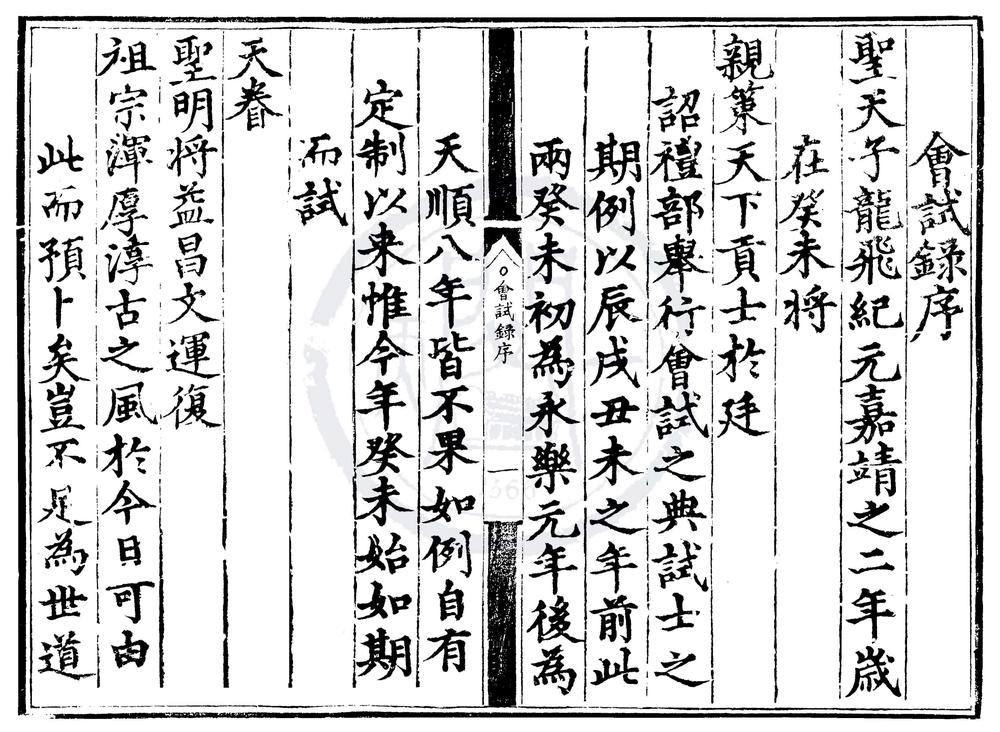 會試錄序
聖天子龍飛紀元嘉靖之二年歲
在癸未将
親策天下貢士於廷
詔禮部舉行會試之典試士之
期例以辰戌丑未之年前此
兩癸未初為永樂元年後為
會試錄序
一
天順八年皆不果如例自有
定制以来惟今年癸未始如期
而試
天眷
聖明将益昌文運復
祖宗渾厚淳古之風於今日可由
此而預卜矣豈不足為世道